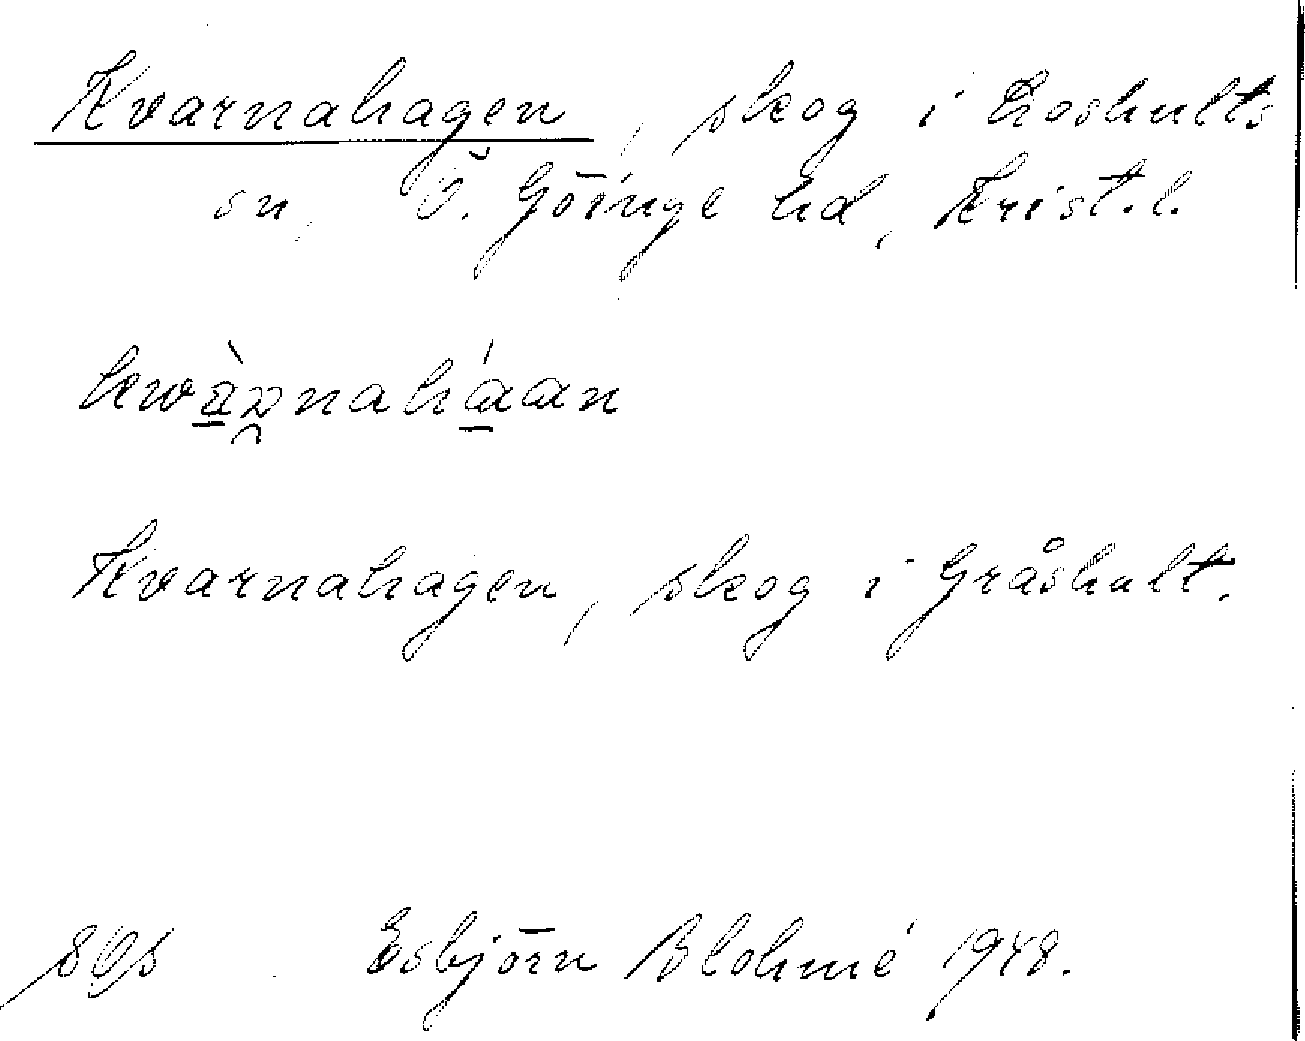 Kvarnahagen, skog i Loshults
sn, Ö. Göinge hd, Krist. l.
Kvarnahagen, skog i Gråshult.
Esbjörn Blohmé 1948.